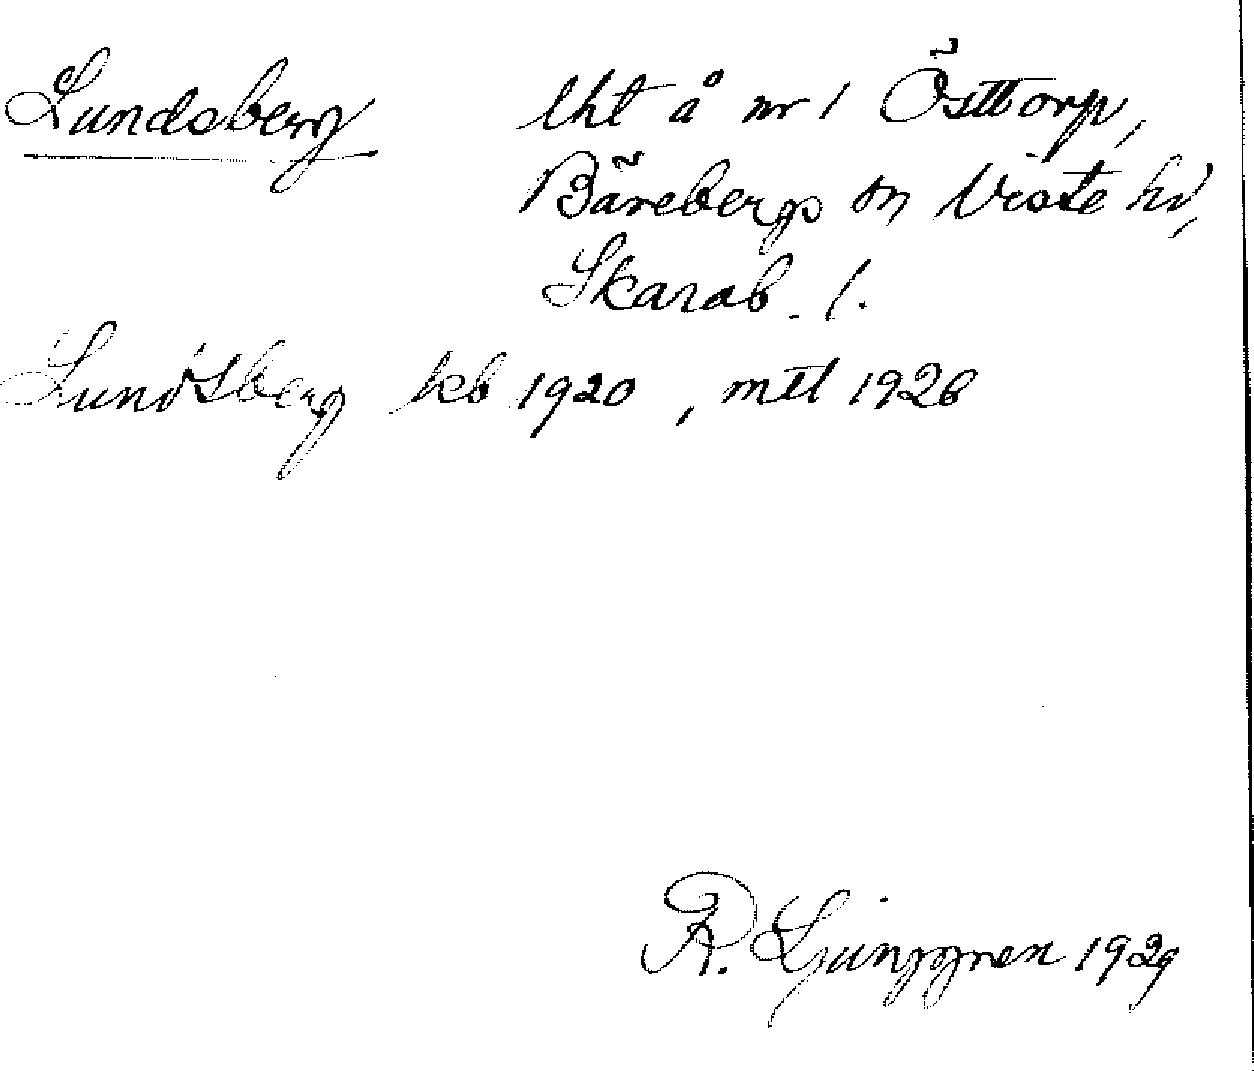 Lundsberg lht å nr 1 Östtorp,
Bärebergs sn Viste hd,
Skarab. l.
Lundsberg kb 1920, mtl 1926
R. Ljunggren 1929